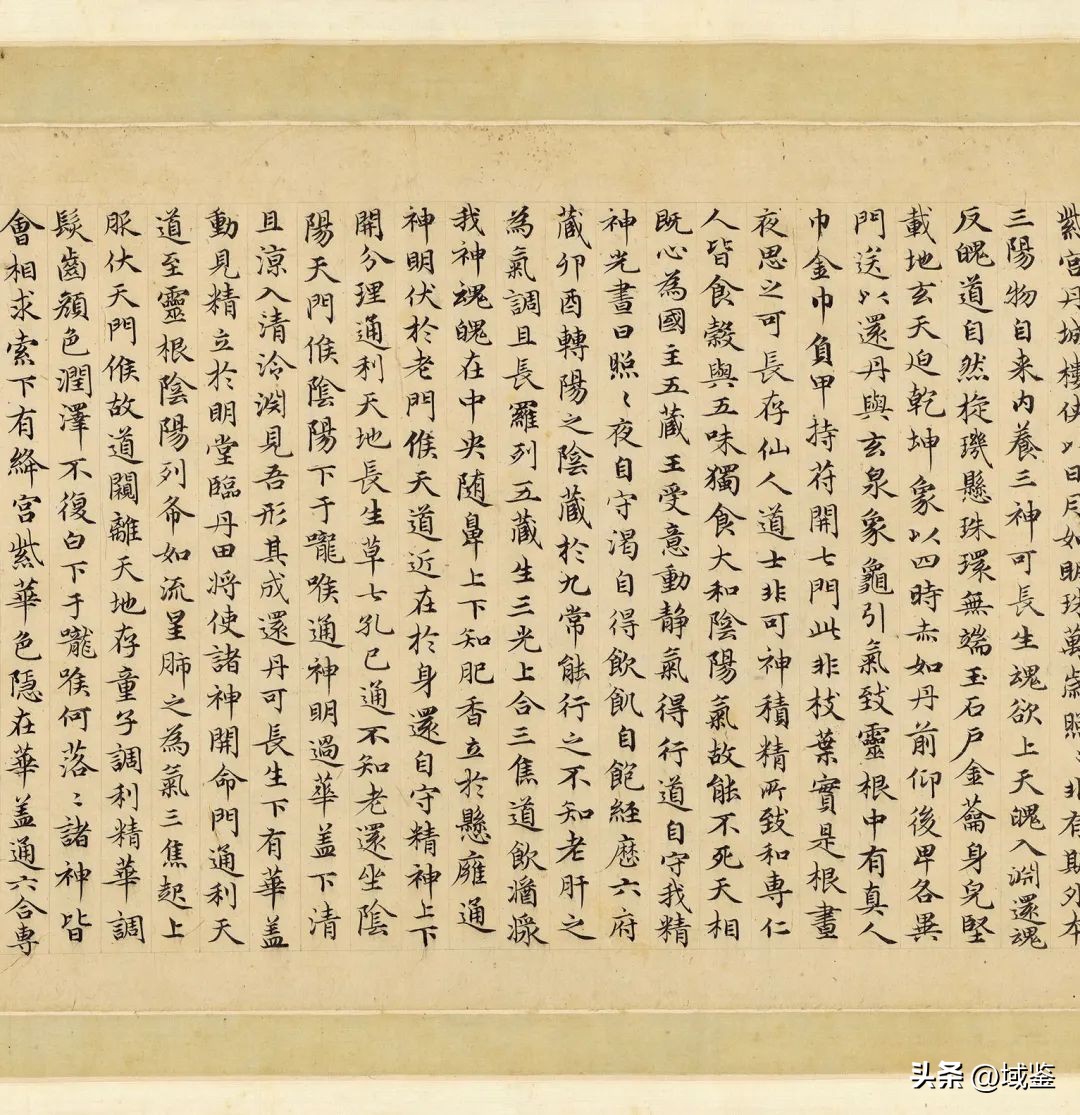 紫宮丹城樓俠以日月如明珠萬歲照〻非有期外本
三陽物自来内養三神可長生魂欲上天魄入淵還魂
反魄道自然㨁璣懸珠環無端玉石戶金蘥身皃堅
載地玄天迫乾坤象以四時赤如丹前仰後畀各異
門送以還丹與玄泉象龜引氣致靈根中有真人
巾金巾負甲持苻開七門此非枝葉實是根晝
夜思之可長存仙人道士非可神積精所致和専仁
人皆食穀與五味獨食大和陰陽氣故能不死天相
既心為國主五藏王受意動静氣得行道自守我精
神光晝日照〻夜自守渴自得飲飢自飽経歷六府
蔵卯酉轉陽之陰藏於九常能行之不知老肝之
為氣調且長羅列五藏生三光上合三焦道飲醬漿
我神魂魄在中央随鼻上下知肥香立於懸廱通
神明伏於老門候天道近在於身還自守精神上下
開分理通利天地長生草七孔已通不知老還坐陰
陽天門候陰陽下于嚨喉通神明過華盖下清
且涼入清泠淵見吾形其成還丹可長生下有華盖
動見精立於明堂臨丹田将使諸神開命門通利天
道至靈根陰陽列布如流星肺之為氣三焦起上
服伏天門候故道闚離天地存童子調利精華調
髮齒顔色潤澤不復白下于嚨喉何落〻諸神皆
會相求索下有絳宮紫華色隱在華盖通六合専
头条 @域鉴